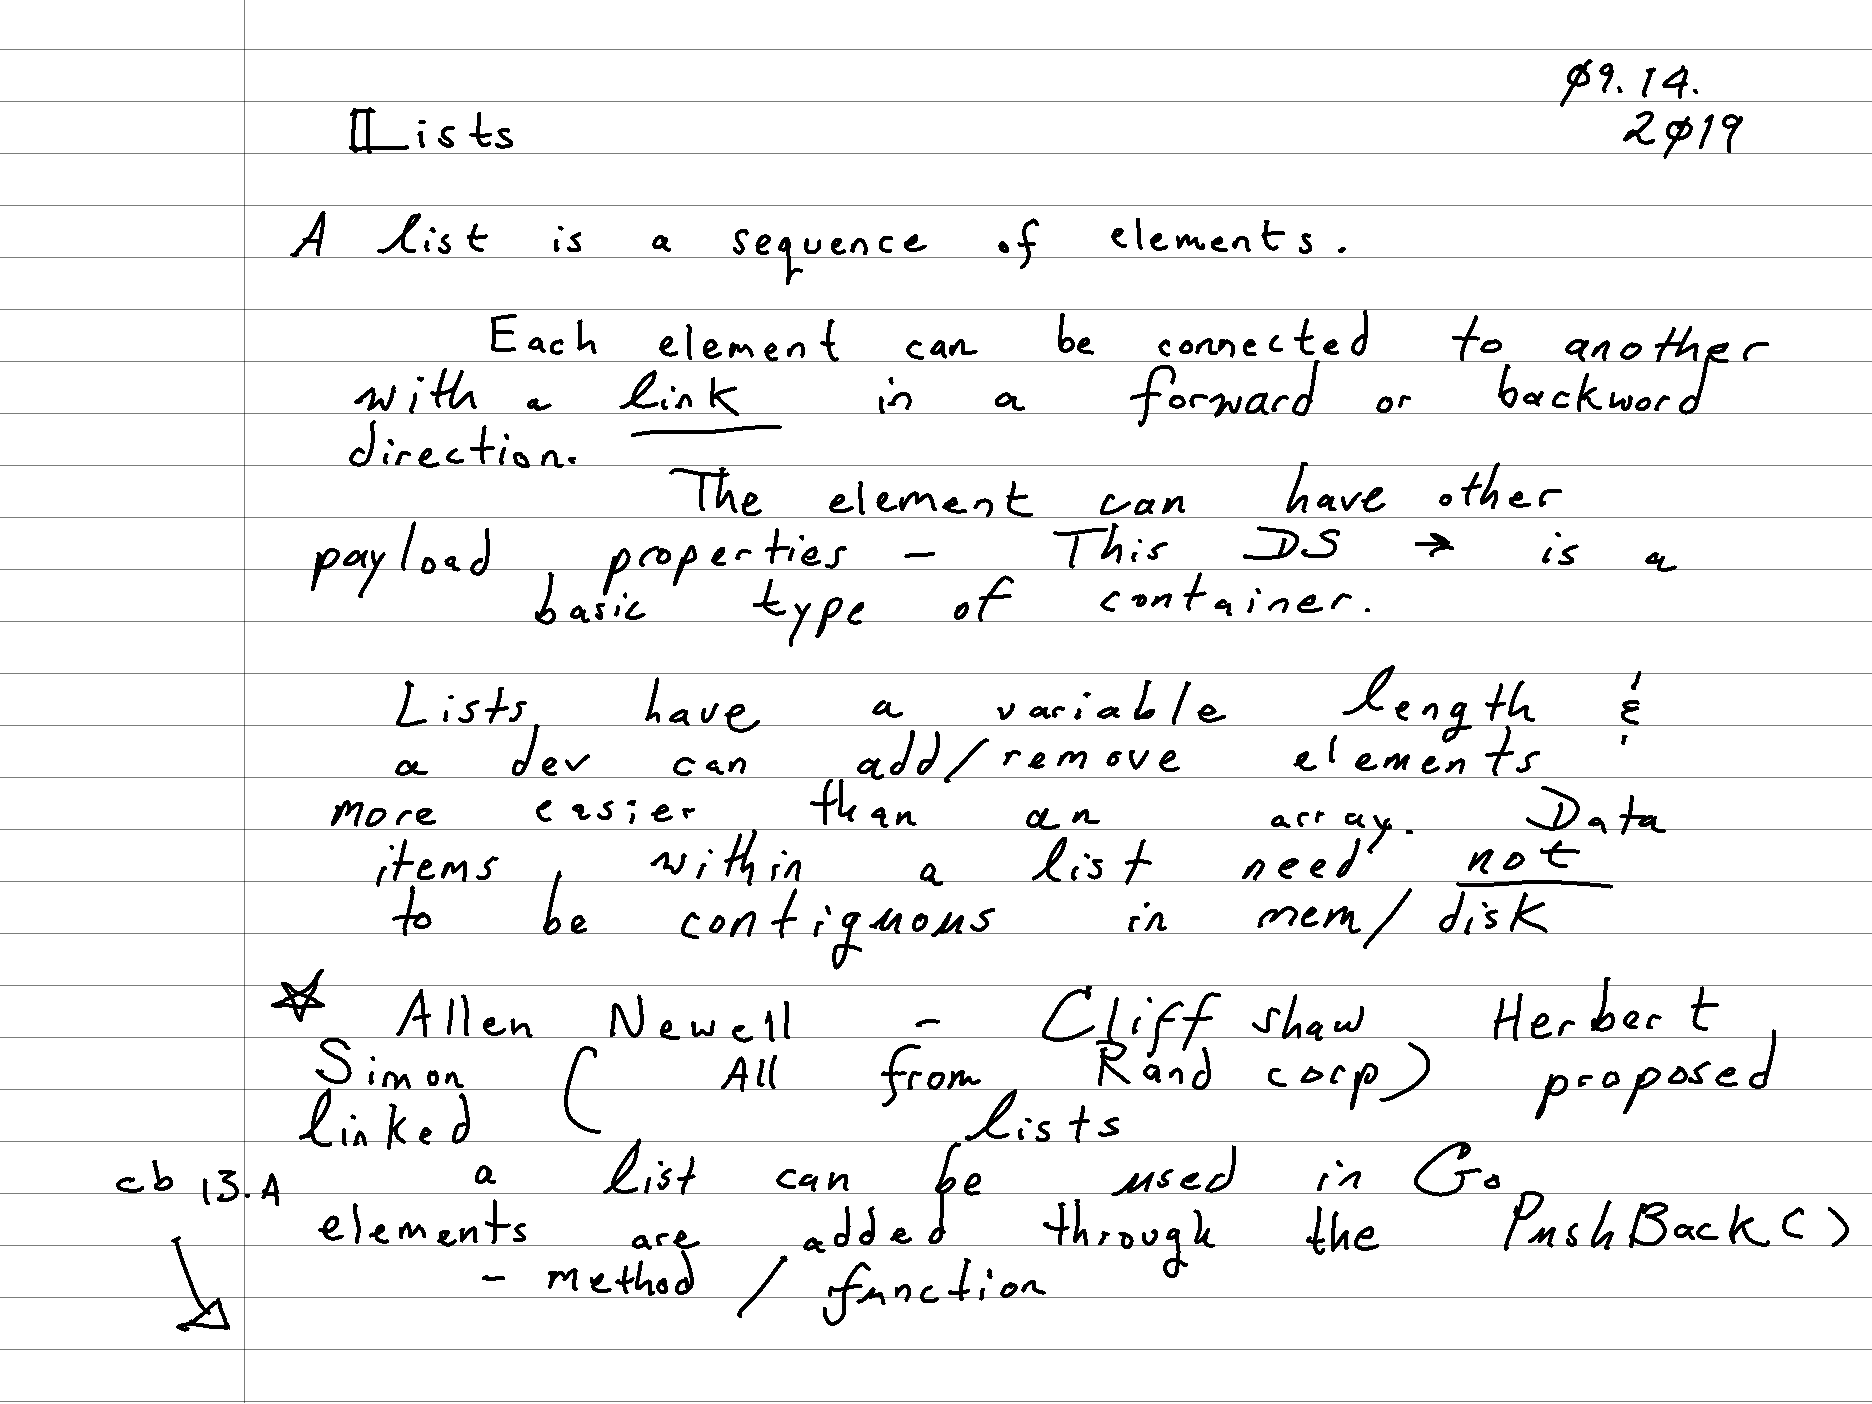 Ø9.14.
2Ø19
Lists
A list is a sequence of elements.
Each element can be connected to another
with a link in a forward or backword
direction.
The element can have other
payload properties - This DS → is a
basic type of container.
Lists have a variable length &
a dev can add/remove elements
more easier than an array. Data
items within a list need not
to be contiguous in mem/disk
☆ Allen Newell - Cliff shaw Herbert
Simon ( All from Rand corp) proposed
linked lists
cb 13.A a list can be used in Go
elements are added through the PushBack()
- method / function